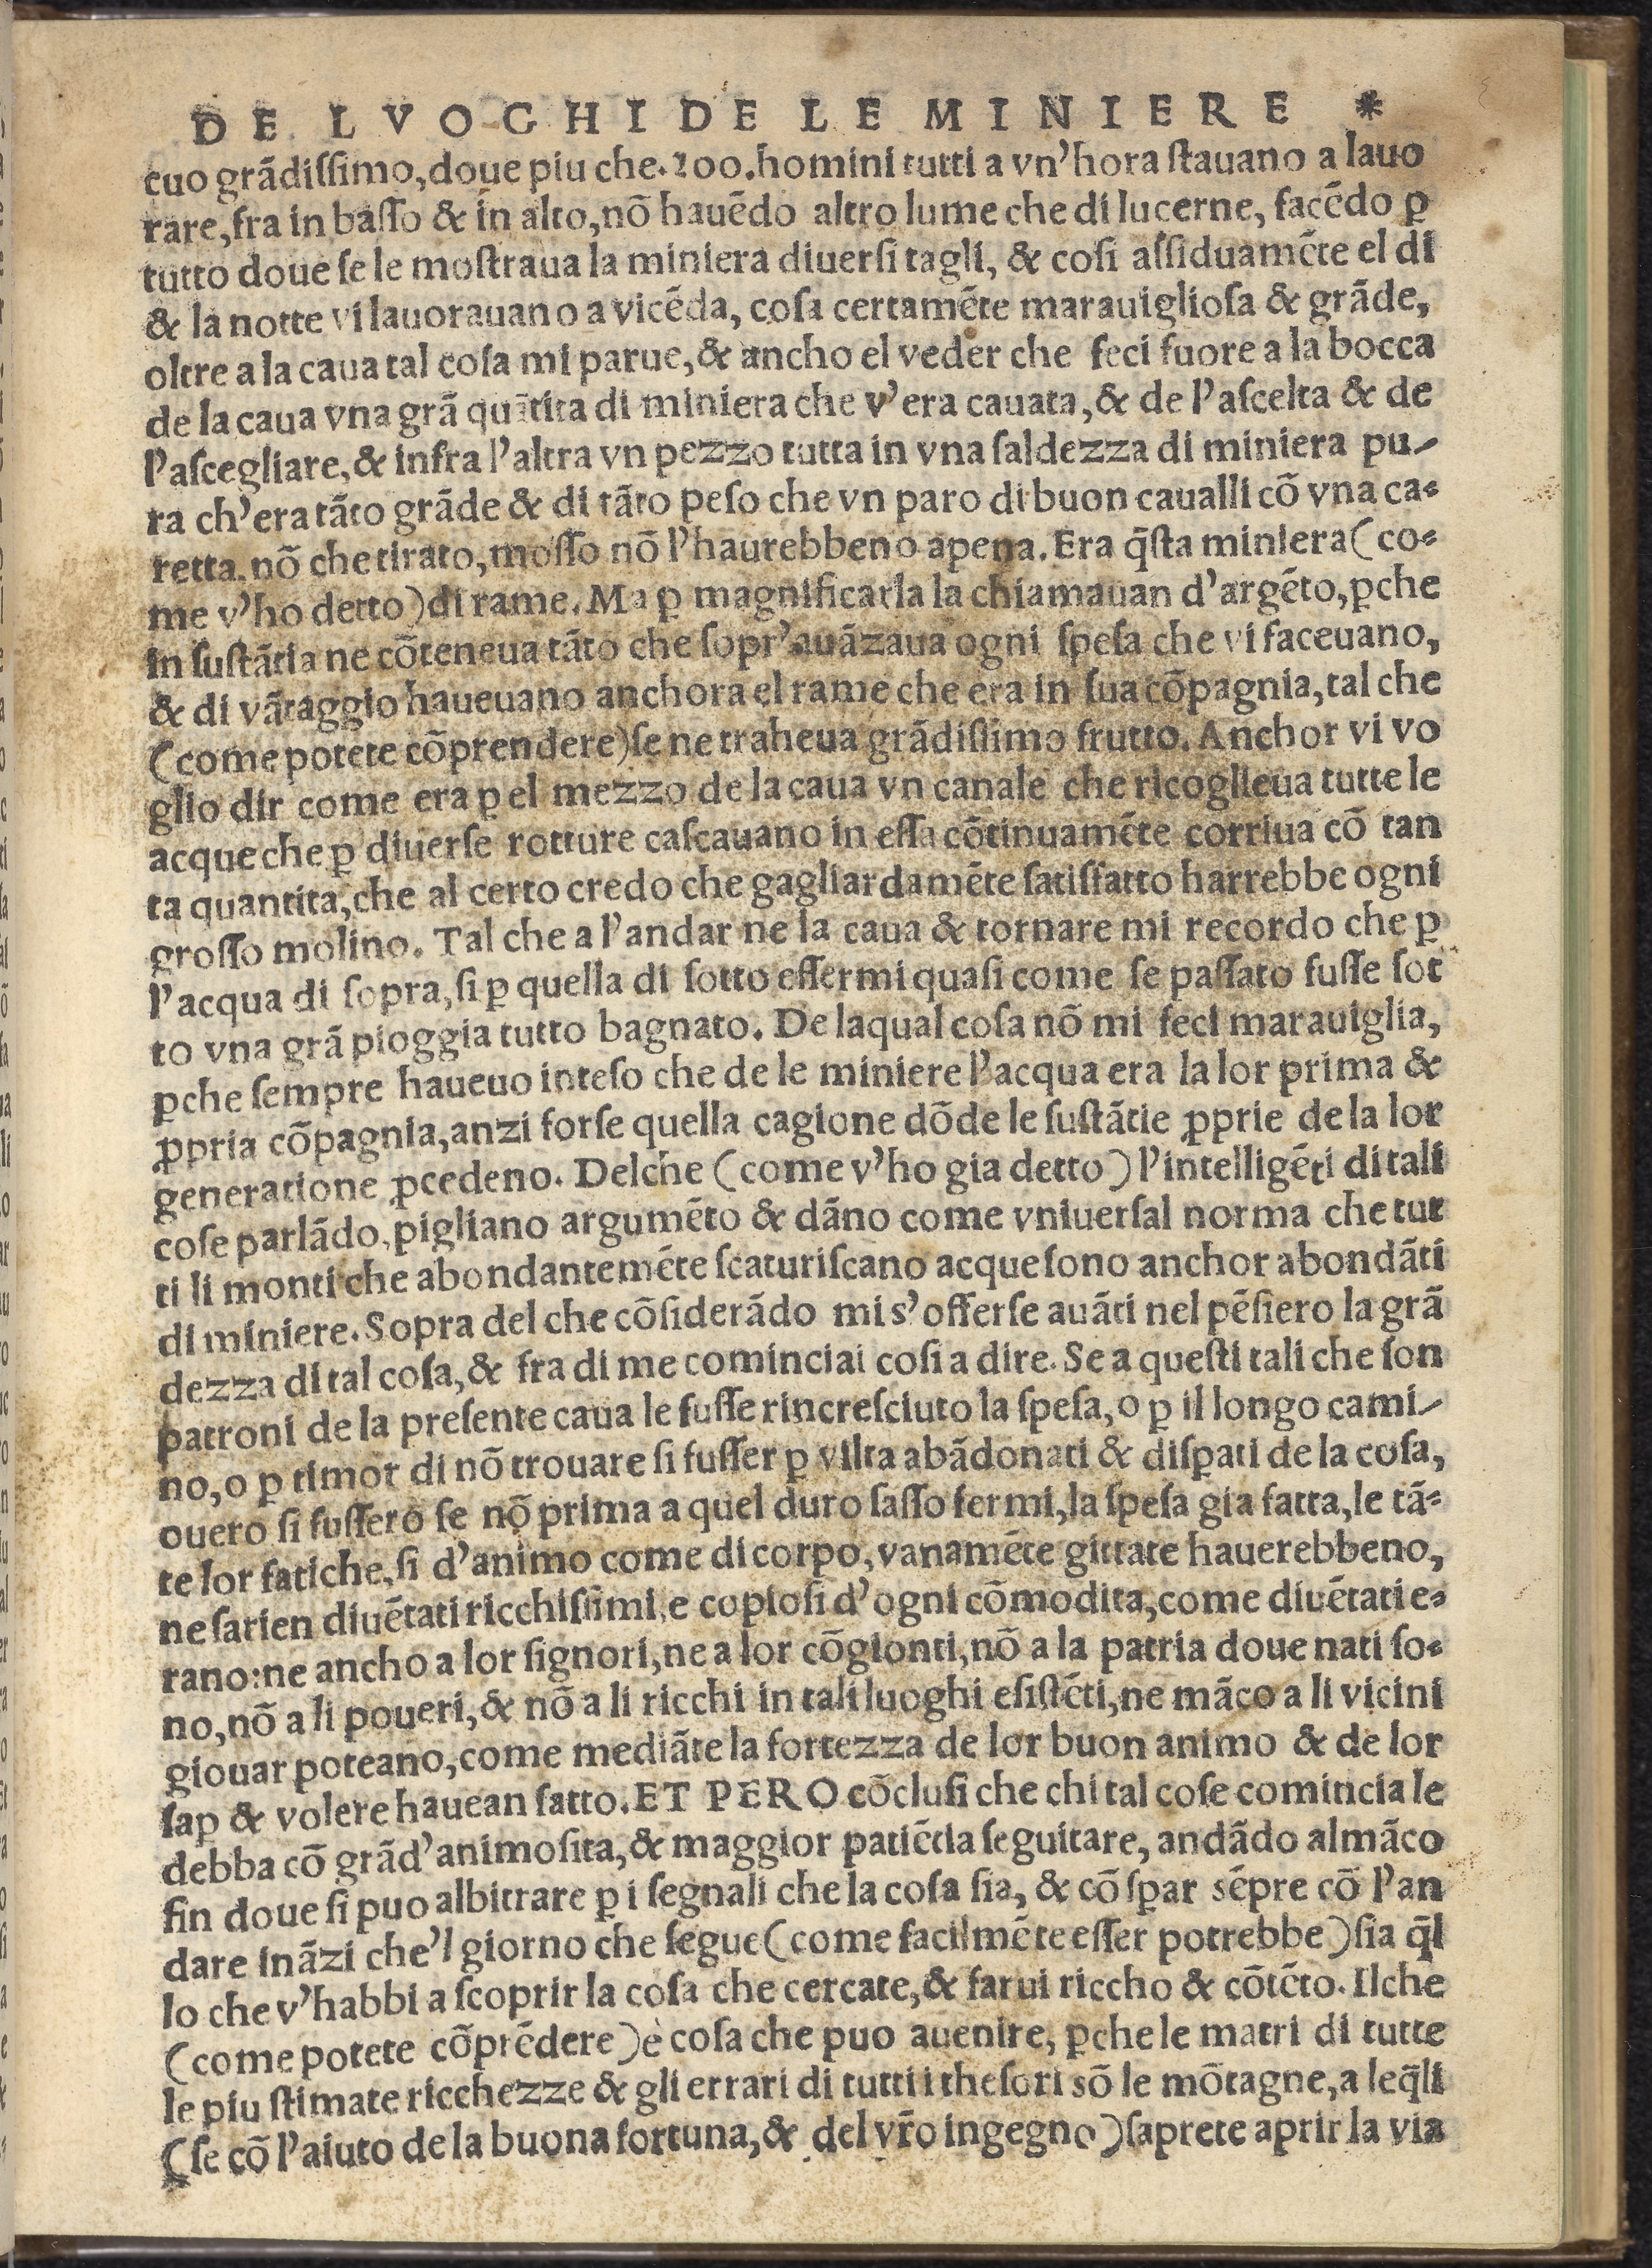 DE LVOGHI DE LE MINIERE *
cuo grãdiſſimo, doue piu che. 200. homini tutti a vn'hora ſtauano a lauo
rare, fra in baſſo & in alto, nõ hauẽdo altro lume che di lucerne, facẽdo ꝑ
tutto doue ſe le moſtraua la miniera diuerſi tagli, & coſi aſſiduamẽte el di
& la notte vi lauorauano a vicẽda, coſa certamẽte marauiglioſa & grãde,
oltre a la caua tal coſa mi parue, & ancho el veder che feci fuore a la bocca
de la caua vna grã quãtita di miniera che v'era cauata, & de l'aſcelta & de
l'aſcegliare, & infra l'altra vn pezzo tutta in vna ſaldezza di miniera pu-
ra ch'era tãto grãde & di tãto peſo che vn paro di buon caualli cõ vna ca-
retta. nõ che tirato, moſſo nõ l'haurebbeno apena. Era q̃ſta miniera (co-
me v'ho detto) di rame. Ma ꝑ magnificarla la chiamauan d'argẽto, ꝑche
in ſuſtãtia ne cõteneua tãto che ſopr'auãzaua ogni ſpeſa che vi faceuano,
& di vãtaggio haueuano anchora el rame che era in ſua cõpagnia, tal che
(come potete cõprendere) ſe ne traheua grãdiſſimo frutto. Anchor vi vo
glio dir come era ꝑ el mezzo de la caua vn canale che ricoglieua tutte le
acque che ꝑ diuerſe rotture caſcauano in eſſa cõtinuamẽte corriua cõ tan
ta quantita, che al certo credo che gagliardamẽte ſatisfatto harrebbe ogni
groſſo molino. Tal che a l'andar ne la caua & tornare mi recordo che ꝑ
l'acqua di ſopra, ſi ꝑ quella di ſotto eſſermi quaſi come ſe paſſato fuſſe ſot
to vna grã pioggia tutto bagnato. De laqual coſa nõ mi feci marauiglia,
ꝑche ſempre haueuo inteſo che de le miniere l'acqua era la lor prima &
ꝓpria cõpagnia, anzi forſe quella cagione dõde le ſuſtãtie ꝓprie de la lor
generatione ꝓcedeno. Delche (come v'ho gia detto) l'intelligẽti di tali
coſe parlãdo, pigliano argumẽto & dãno come vniuerſal norma che tut
ti li monti che abondantemẽte ſcaturiſcano acque ſono anchor abondãti
di miniere. Sopra del che cõſiderãdo mi s'offerſe auãti nel pẽſiero la grã
dezza di tal coſa, & fra di me cominciai coſi a dire. Se a queſti tali che ſon
patroni de la preſente caua le fuſſe rincreſciuto la ſpeſa, o ꝑ il longo cami-
no, o ꝑ timor di nõ trouare ſi fuſſer ꝑ vilta abãdonati & diſꝑati de la coſa,
ouero ſi fuſſero ſe nõ prima a quel duro ſaſſo fermi, la ſpeſa gia fatta, le tã-
te lor fatiche, ſi d'animo come di corpo, vanamẽte gittate hauerebbeno,
ne ſarien diuẽtati ricchiſſimi, e copioſi d'ogni cõmodita, come diuẽtati e-
rano: ne ancho a lor ſignori, ne a lor cõgionti, nõ a la patria doue nati ſo-
no, nõ a li poueri, & nõ a li ricchi in tali luoghi eſiſtẽti, ne mãco a li vicini
giouar poteano, come mediãte la fortezza de lor buon animo & de lor
ſaꝑ & volere hauean fatto. ET PERO cõcluſi che chi tal coſe comincia le
debba cõ grãd'animoſita, & maggior patiẽtia ſeguitare, andãdo almãco
fin doue ſi puo albitrare ꝑ i ſegnali che la coſa ſia, & cõ ſꝑar sẽpre cõ l'an
dare inãzi che'l giorno che ſegue (come facilmẽte eſſer potrebbe) ſia q̃l
lo che v'habbi a ſcoprir la coſa che cercate, & farui riccho & cõtẽto. Ilche
(come potete cõprẽdere) è coſa che puo auenire, ꝑche le matri di tutte
le piu ſtimate ricchezze & gli errari di tutti i theſori sõ le mõtagne, a leq̃li
(ſe cõ l'aiuto de la buona fortuna, & del vr̃o ingegno) ſaprete aprir la via